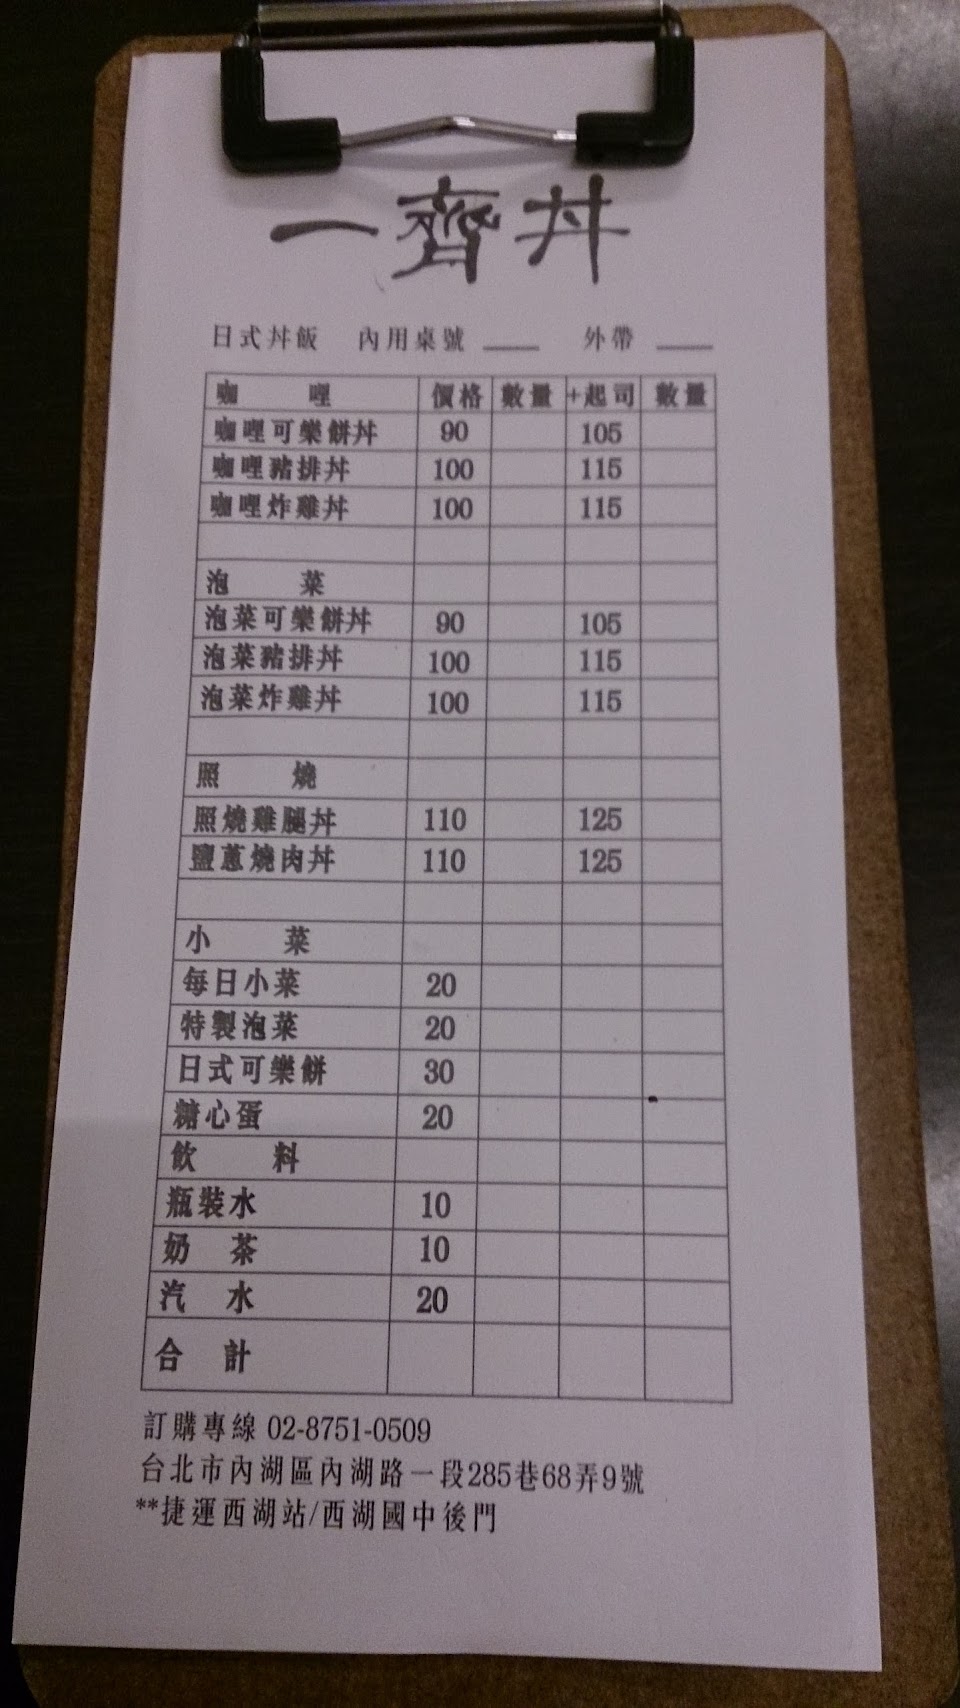 一齊丼
日式丼飯 內用桌號 ____ 外帶 ____
咖 哩 價格 數量 +起司 數量
咖哩可樂餅丼 90 105
咖哩豬排丼 100 115
咖哩炸雞丼 100 115
泡 菜
泡菜可樂餅丼 90 105
泡菜豬排丼 100 115
泡菜炸雞丼 100 115
照 燒
照燒雞腿丼 110 125
鹽蔥燒肉丼 110 125
小 菜
每日小菜 20
特製泡菜 20
日式可樂餅 30
糖心蛋 20
飲 料
瓶裝水 10
奶 茶 10
汽 水 20
合 計
訂購專線 02-8751-0509
台北市內湖區內湖路一段285巷68弄9號
**捷運西湖站/西湖國中後門